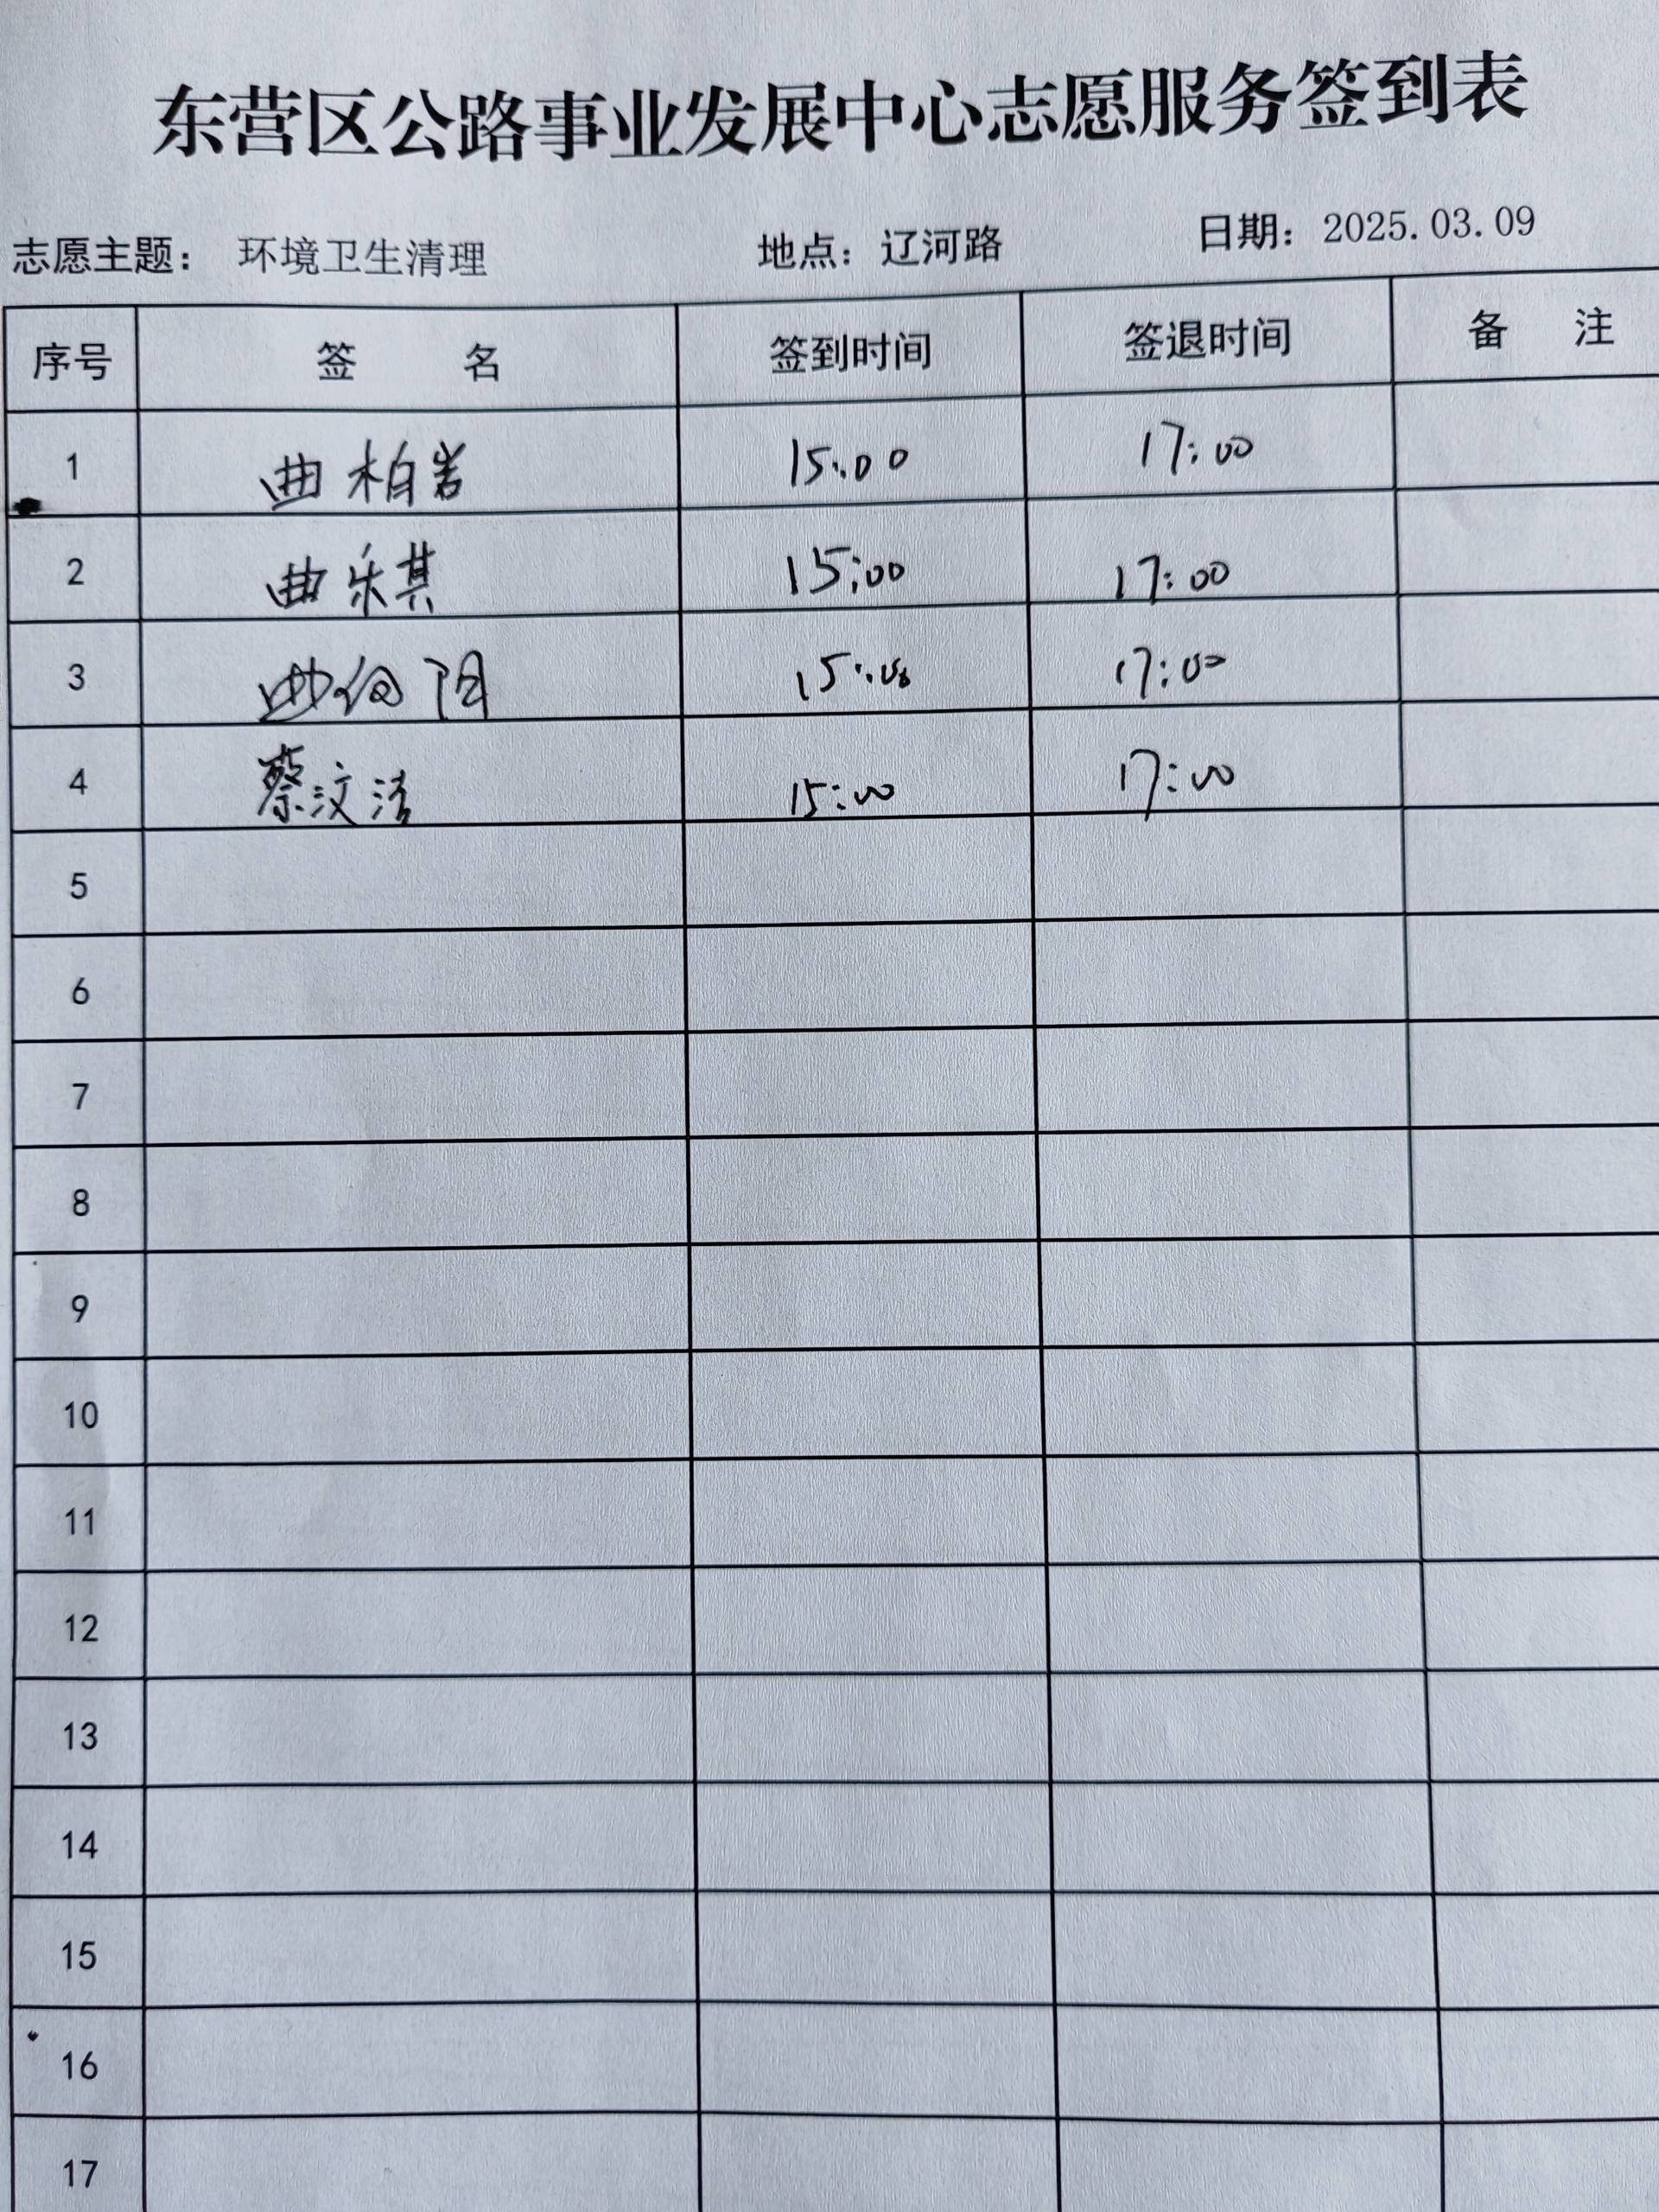 东营区公路事业发展中心志愿服务签到表
志愿主题： 环境卫生清理 地点：辽河路 日期：2025.03.09
序号 签 名 签到时间 签退时间 备 注
1 曲柏岩 15:00 17:00
2 曲乐其 15:00 17:00
3 曲向阳 15:00 17:00
4 蔡汶洁 15:00 17:00
5
6
7
8
9
10
11
12
13
14
15
16
17